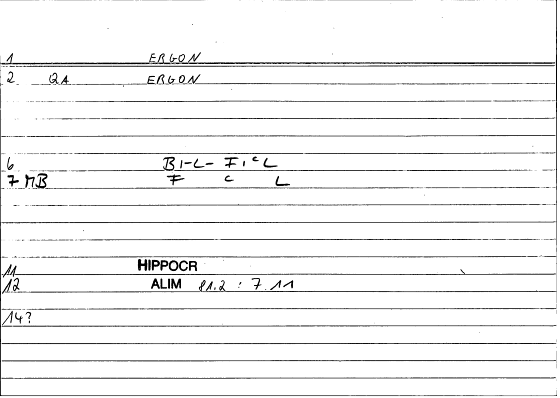 1 ERGON
2 QA ERGON
6 BI-L- FICL
7 MB F C L
11 HIPPOCR
12 ALIM 81.2 : 7.11
14?